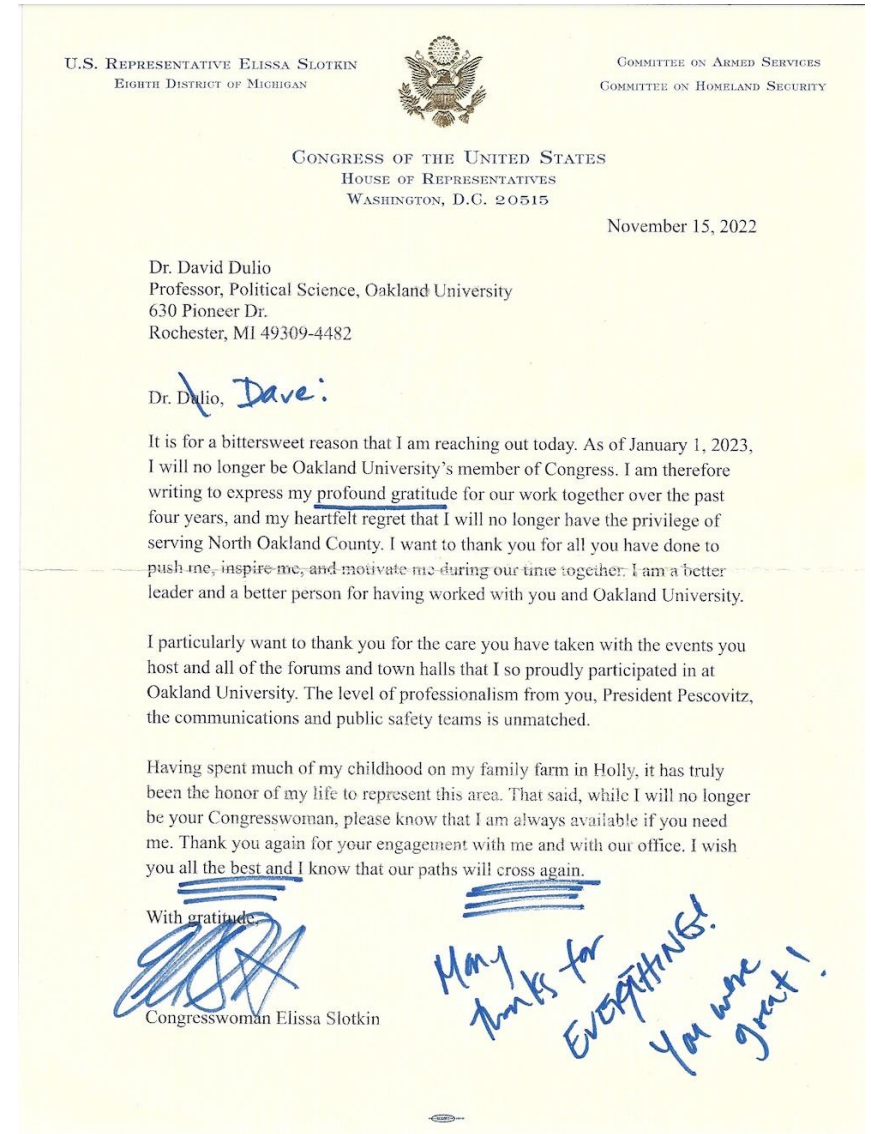 U.S. Representative Elissa Slotkin
Eighth District of Michigan
Committee on Armed Services
Committee on Homeland Security
Congress of the United States
House of Representatives
Washington, D.C. 20515
November 15, 2022
Dr. David Dulio
Professor, Political Science, Oakland University
630 Pioneer Dr.
Rochester, MI 49309-4482
Dr. Dulio, Dave:
It is for a bittersweet reason that I am reaching out today. As of January 1, 2023,
I will no longer be Oakland University's member of Congress. I am therefore
writing to express my profound gratitude for our work together over the past
four years, and my heartfelt regret that I will no longer have the privilege of
serving North Oakland County. I want to thank you for all you have done to
push me, inspire me, and motivate me during our time together. I am a better
leader and a better person for having worked with you and Oakland University.
I particularly want to thank you for the care you have taken with the events you
host and all of the forums and town halls that I so proudly participated in at
Oakland University. The level of professionalism from you, President Pescovitz,
the communications and public safety teams is unmatched.
Having spent much of my childhood on my family farm in Holly, it has truly
been the honor of my life to represent this area. That said, while I will no longer
be your Congresswoman, please know that I am always available if you need
me. Thank you again for your engagement with me and with our office. I wish
you all the best and I know that our paths will cross again.
With gratitude,
Congresswoman Elissa Slotkin
Many
thanks for
EVERYTHING!
You were
great!